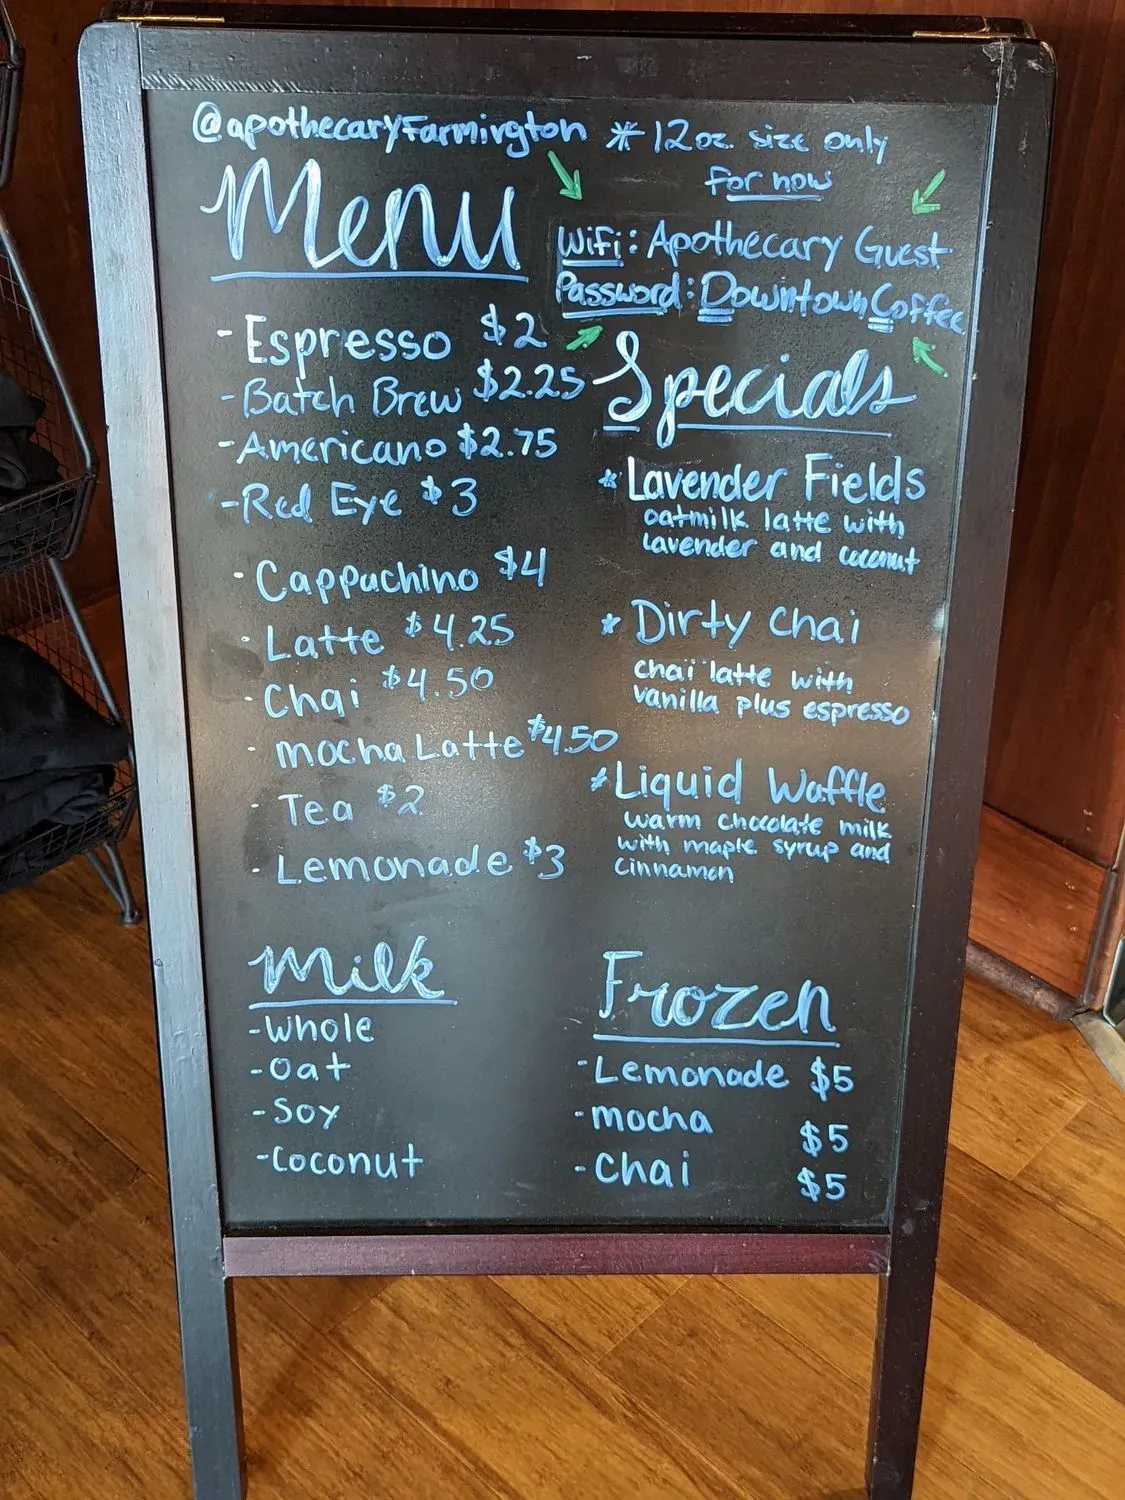 @apothecaryFarmington
* 12oz. size only
for now
Menu
WiFi: Apothecary Guest
Password: DowntownCoffee
- Espresso $2
- Batch Brew $2.25
- Americano $2.75
- Red Eye $3
- Cappuchino $4
- Latte $4.25
- Chai $4.50
- mocha Latte $4.50
- Tea $2
- Lemonade $3
Specials
* Lavender Fields
oatmilk latte with
lavender and coconut
* Dirty Chai
chai latte with
vanilla plus espresso
* Liquid Waffle
warm chocolate milk
with maple syrup and
cinnamon
Milk
- Whole
- Oat
- Soy
- Coconut
Frozen
- Lemonade $5
- mocha $5
- Chai $5